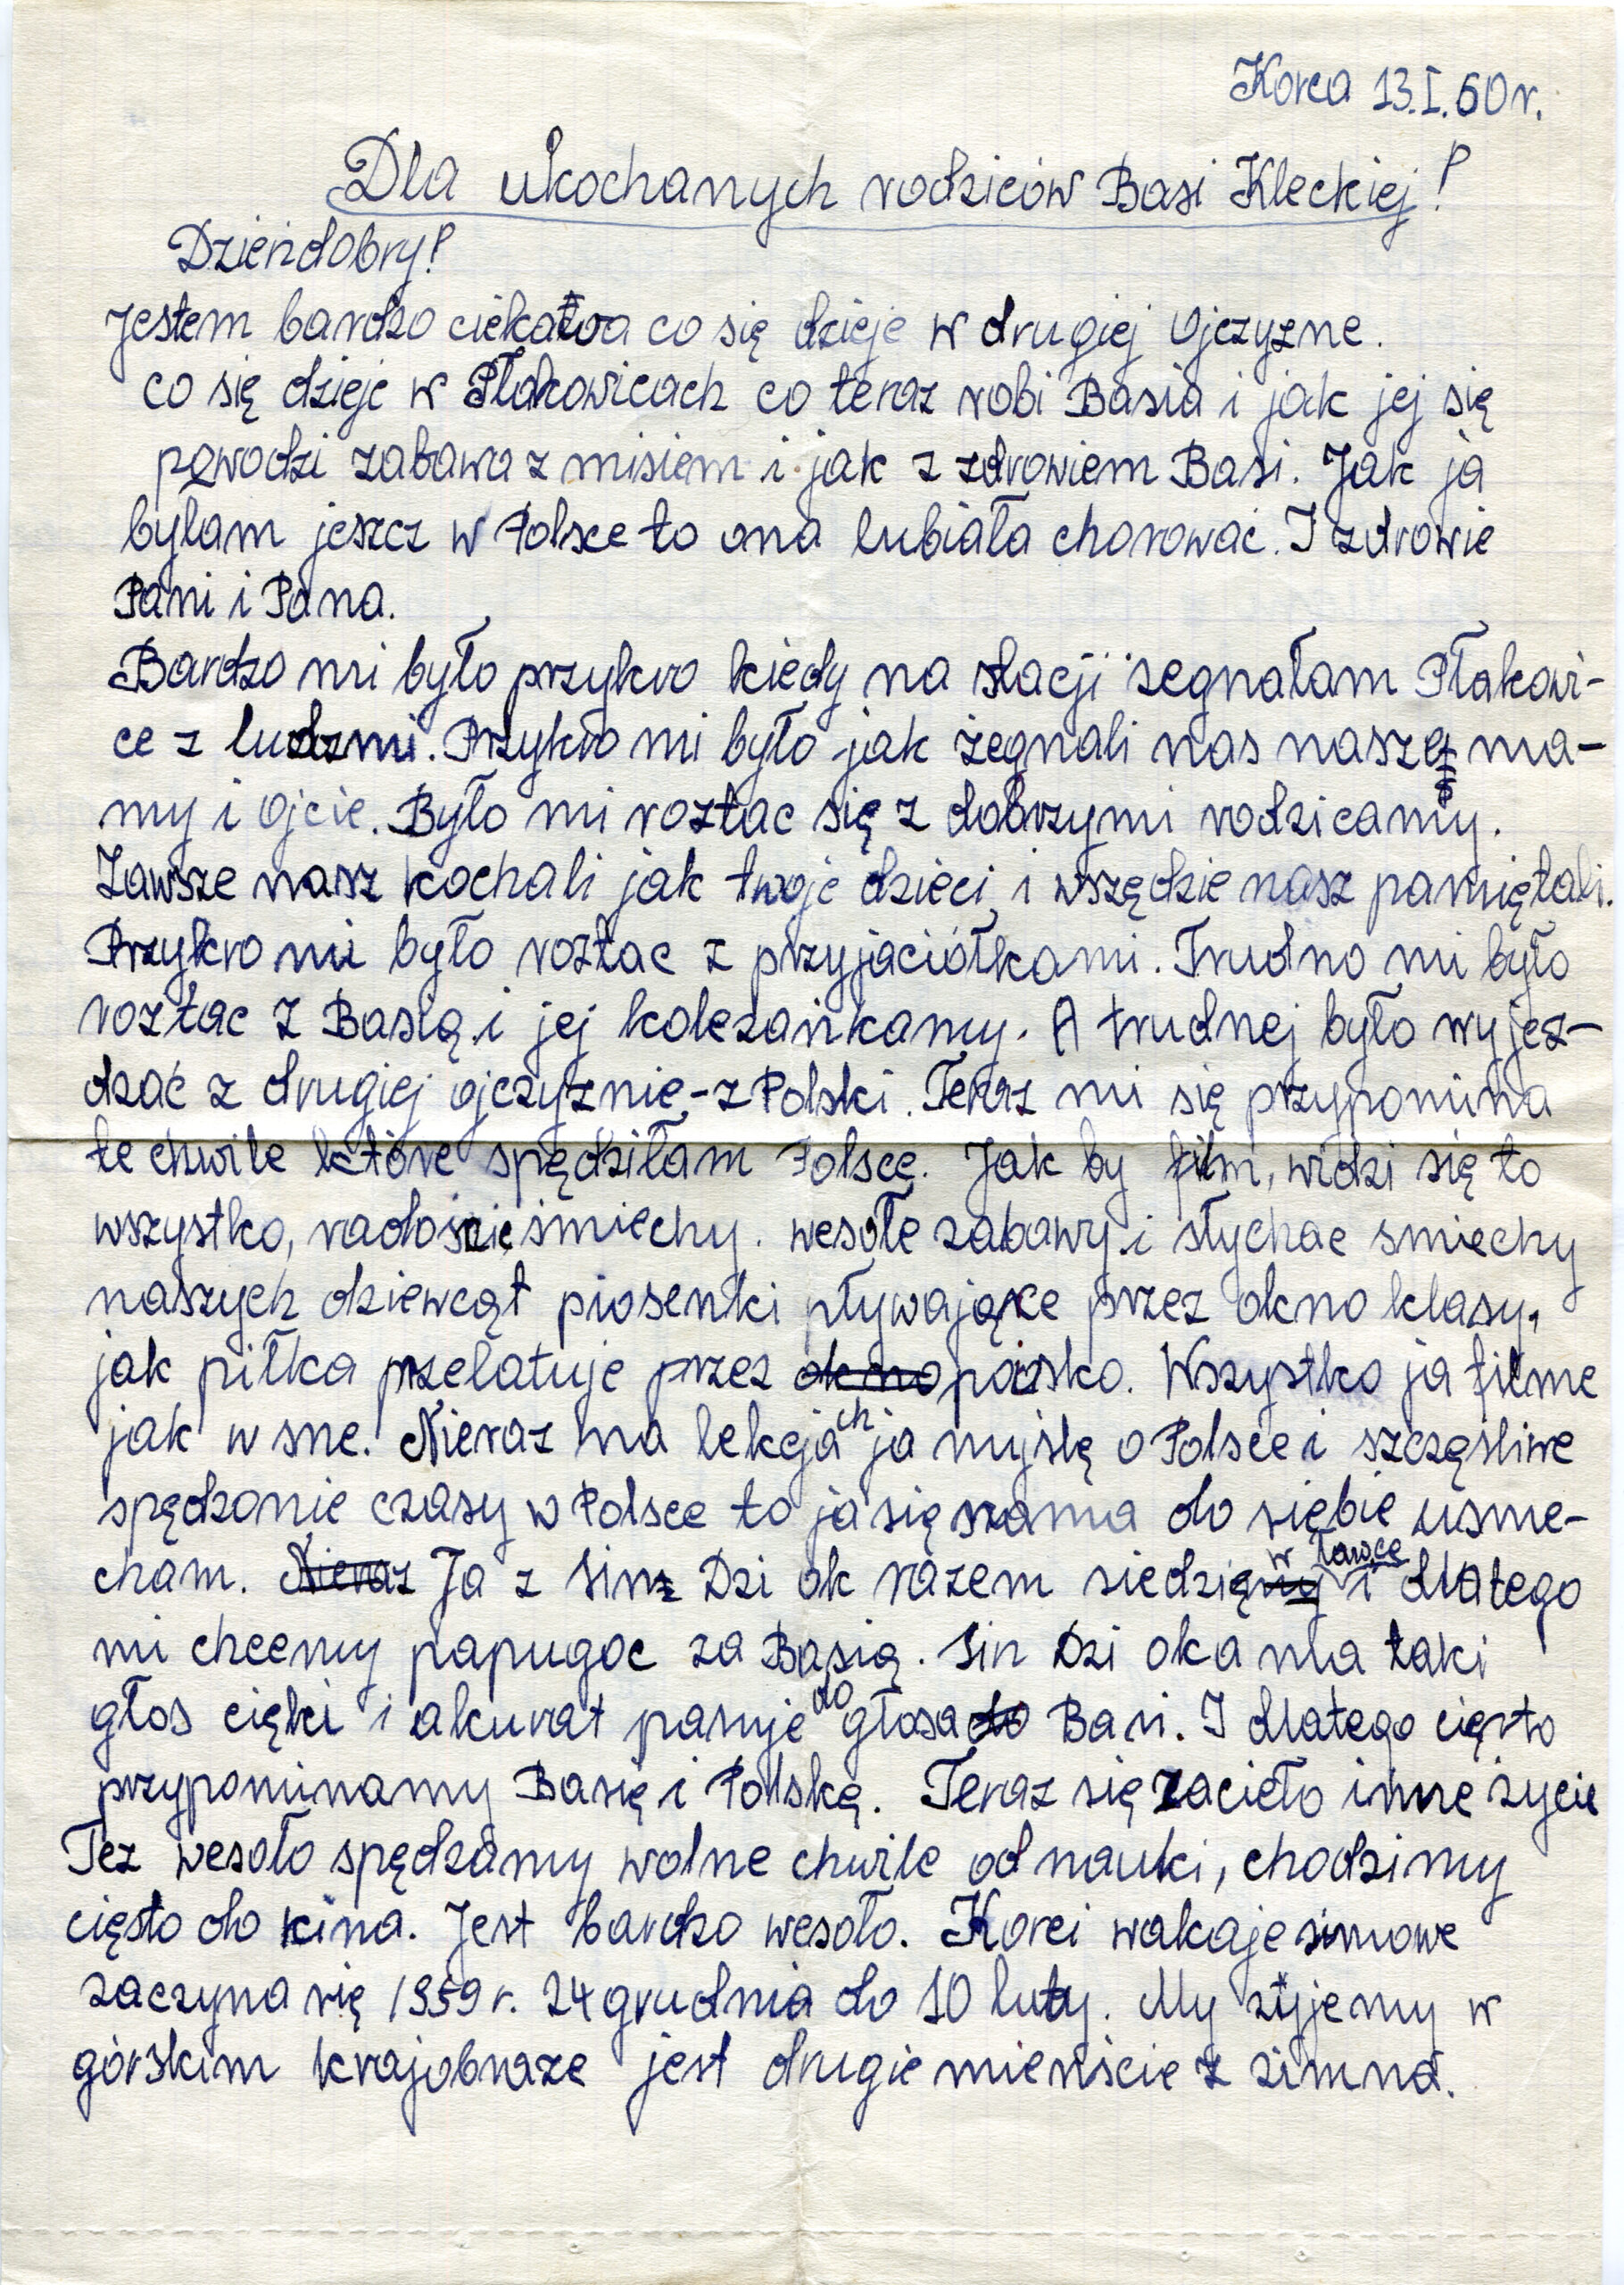 Korea 13.I.60r.
Dla ukochanych rodziców Basi Kleckiej!
Dzieńdobry!
Jestem bardzo ciekawa co się dzieje w drugiej Ojczyzne.
co się dzieje w Płakowicach co teraz robi Basia i jak jej się
powodzi zabawa z misiem i jak z zdrowiem Basi. Jak ja
byłam jeszcz w Polsce to ona lubiała chorować. I zdrowie
Pani i Pana.
Bardzo mi było przykro kiedy na stacji żegnałam Płakowi-
ce z ludzmi. Przykro mi było jak żegnali nas nasze ma-
my i Ojcie. Było mi roztac się z dobrzymi rodzicamy.
Zawsze nasz kochali jak twoje dzieci i wszędzie nasz pamiętali.
Przykro mi było roztac z przyjaciółkami. Trudno mi było
roztac z Basią i jej kolezańkamy. A trudnej było wyjez-
dzać z drugiej ojczyznie-z Polski. Teraz mi się przypomina
te chwile które spędziłam Polsce. Jak by film, widzi się to
wszystko, radośnie śmiechy. wesołe zabawy i słychac smiechy
naszych dziewcąt piosenki pływające przez okno klasy,
jak piłka przelatuje przez okno poisko. Wszystko ja filme
jak w sne. Nieraz na lekcjach ja myślę o Polsce i szczęśliwe
spędzonie czasy w Polsce to ja się sama do siębie uśme-
cham. Nieraz Ja z Sin Dzi ok razem siedzię w ławce i dlatego
mi chcemy papugoc za Basią. Sin Dzi oka ma taki
głos cięki i akurat pasuje do głosa do Basi. I dlatego cięsto
przypominamy Basię i Polskę. Teraz się zacieło inne życie
Tez wesoło spędzamy wolne chwile od nauki, chodzimy
cięsto do kina. Jest bardzo wesoło. Korei wakaje simowe
zaczyna się 1959 r. 24 grudnia do 10 luty. My żyjemy w
górskim krajobraze jest drugie mienście z zimna.